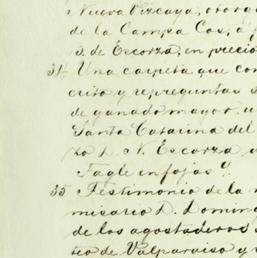 Nueva Vizcaya, otorg
de la Campa Cos, a
S. de Escorza, en precio
31. Una carpeta que con
crito y repreguntas
de ganado mayor, u
Santa Catarina del
zo D. N. Escorza,
Tagle en fojas 4.
35 Testimonio de la
misario D. Doming
de los agostaderos
teo de Valparaiso y